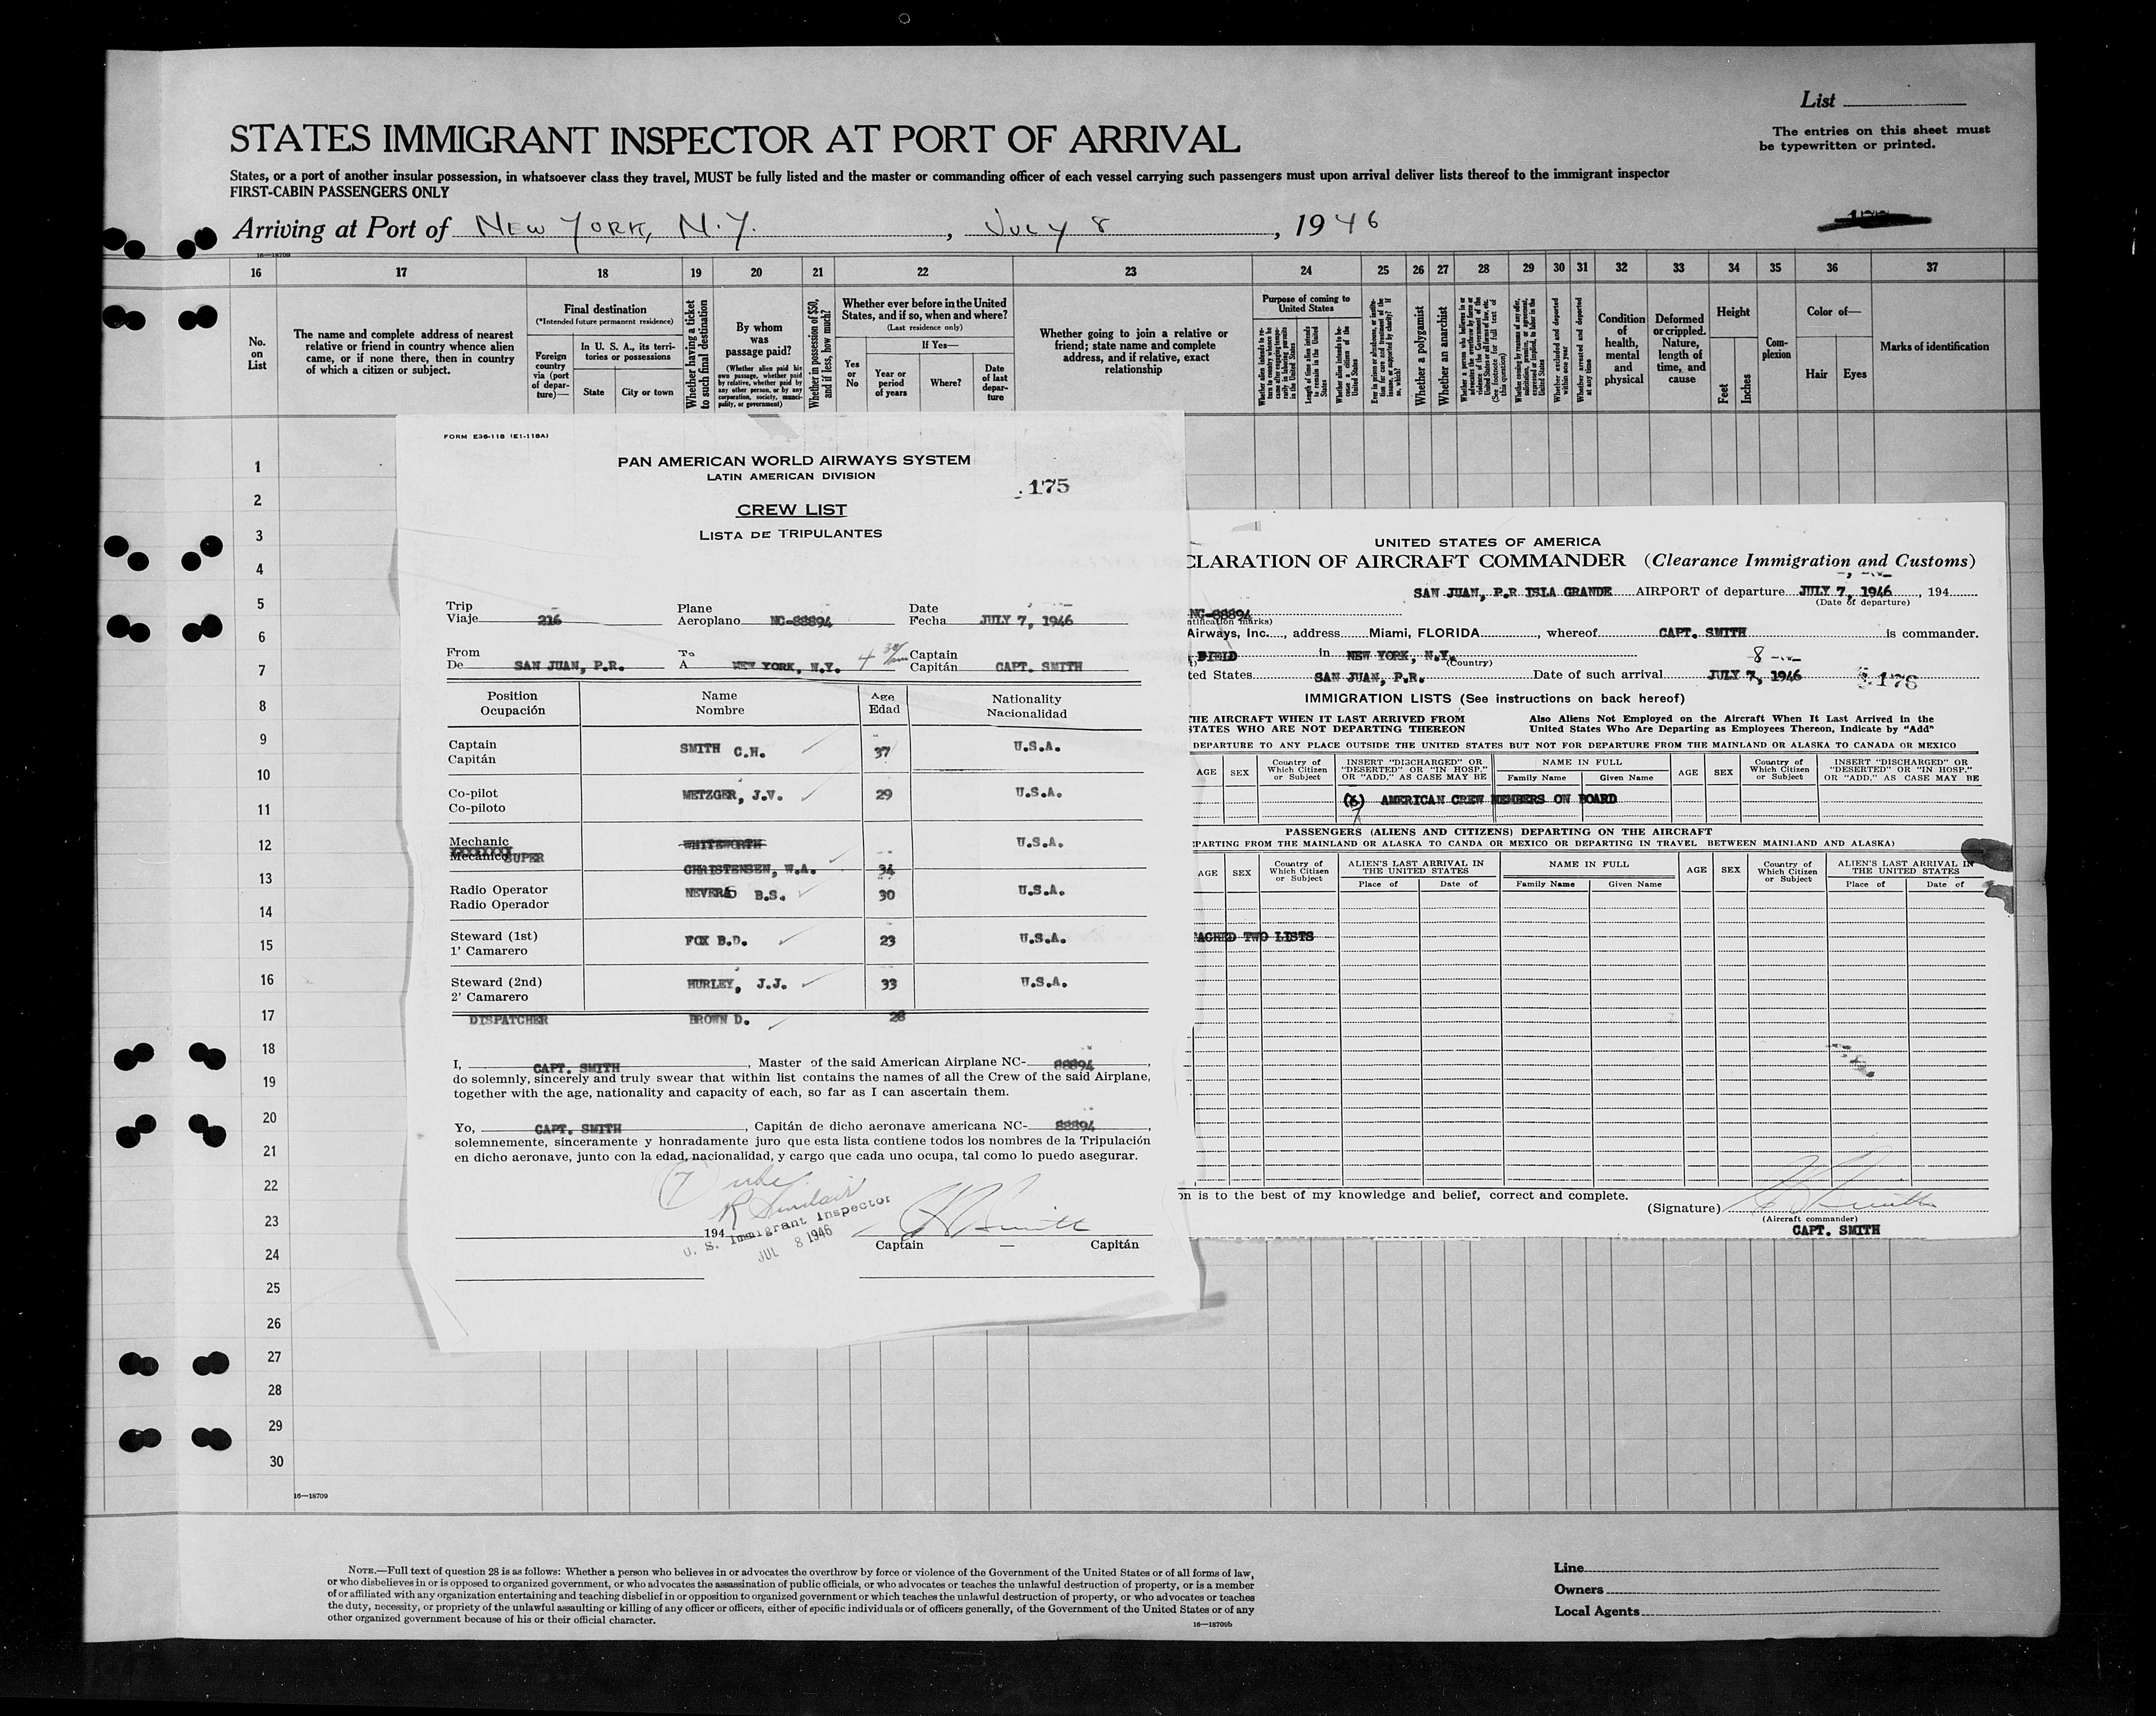 List
STATES IMMIGRANT INSPECTOR AT PORT OF ARRIVAL
The entries on this sheet must
be typewritten or printed.
States, or a port of another insular possession, in whatsoever class they travel, MUST be fully listed and the master or commanding officer of each vessel carrying such passengers must upon arrival deliver lists thereof to the immigrant inspector
FIRST-CABIN PASSENGERS ONLY
Arriving at Port of NEW YORK, N.Y., JULY 8, 1946
16—18709
16 17 18 19 20 21 22 23 24 25 26 27 28 29 30 31 32 33 34 35 36 37
No.
on
List
The name and complete address of nearest
relative or friend in country whence alien
came, or if none there, then in country
of which a citizen or subject.
Final destination
(*Intended future permanent residence)
Foreign
country
via (port
of depar-
ture)—
In U. S. A., its terri-
tories or possessions
State
City or town
Whether having a ticket
to such final destination
By whom
was
passage paid?
(Whether alien paid his
own passage, whether paid
by relative, whether paid by
any other person, or by any
corporation, society, munici-
pality, or government)
Whether in possession of $50,
and if less, how much?
Whether ever before in the United
States, and if so, when and where?
(Last residence only)
Yes
or
No
If Yes—
Year or
period
of years
Where?
Date
of last
depar-
ture
Whether going to join a relative or
friend; state name and complete
address, and if relative, exact
relationship
Purpose of coming to
United States
Whether alien intends to re-
turn to country whence he
came after engaging tempo-
rarily in laboring pursuits
in the United States
Length of time alien intends
to remain in the United
States
Whether alien intends to be-
come a citizen of the
United States
Ever in prison or almshouse, or institu-
tion for care and treatment of the
insane, or supported by charity? If
so, which?
Whether a polygamist
Whether an anarchist
Whether a person who believes in or
advocates the overthrow by force or
violence of the Government of the
United States or all forms of law, etc.
(See footnote for full text of
this question)
Whether coming by reasons of any offer,
solicitation, promise, or agreement,
expressed or implied, to labor in the
United States
Whether excluded and deported
within one year
Whether arrested and deported
at any time
Condition
of
health,
mental
and
physical
Deformed
or crippled.
Nature,
length of
time, and
cause
Height
Feet
Inches
Com-
plexion
Color of—
Hair
Eyes
Marks of identification
1
2
3
4
5
6
7
8
9
10
11
12
13
14
15
16
17
18
19
20
21
22
23
24
25
26
27
28
29
30
16—18709
FORM E36-118 (E1-118A)
PAN AMERICAN WORLD AIRWAYS SYSTEM
LATIN AMERICAN DIVISION
175
CREW LIST
LISTA DE TRIPULANTES
Trip
Viaje 216
Plane
Aeroplano NC-88894
Date
Fecha JULY 7, 1946
From
De SAN JUAN, P.R.
To
A NEW YORK, N.Y.
Captain
Capitán CAPT. SMITH
Position
Ocupación
Name
Nombre
Age
Edad
Nationality
Nacionalidad
Captain
Capitán
SMITH C.H. 37 U.S.A.
Co-pilot
Co-piloto
METZGER, J.V. 29 U.S.A.
Mechanic
Mecánico SUPER
WHITEWORTH
CHRISTENSEN, W.A. 34 U.S.A.
Radio Operator
Radio Operador
NEVERS B.S. 30 U.S.A.
Steward (1st)
1' Camarero
FOX B.D. 23 U.S.A.
Steward (2nd)
2' Camarero
HURLEY, J.J. 33 U.S.A.
DISPATCHER BROWN D. 28
I, CAPT. SMITH, Master of the said American Airplane NC-88894,
do solemnly, sincerely and truly swear that within list contains the names of all the Crew of the said Airplane,
together with the age, nationality and capacity of each, so far as I can ascertain them.
Yo, CAPT. SMITH, Capitán de dicho aeronave americana NC-88894,
solemnemente, sinceramente y honradamente juro que esta lista contiene todos los nombres de la Tripulación
en dicho aeronave, junto con la edad, nacionalidad, y cargo que cada uno ocupa, tal como lo puedo asegurar.
7
R Sinclair
194
U. S. Immigrant Inspector
JUL 8 1946
C H Smith
Captain — Capitán
UNITED STATES OF AMERICA
CLARATION OF AIRCRAFT COMMANDER (Clearance Immigration and Customs)
SAN JUAN, P.R ISLA GRANDE AIRPORT of departure JULY 7, 1946, 194
(Date of departure)
NC-88894
ntification marks)
Airways, Inc., address Miami, FLORIDA, whereof CAPT. SMITH is commander.
FIELD in NEW YORK, N.Y.
(Country)
8
ted States SAN JUAN, P.R. Date of such arrival JULY 7, 1946 176
IMMIGRATION LISTS (See instructions on back hereof)
HE AIRCRAFT WHEN IT LAST ARRIVED FROM
STATES WHO ARE NOT DEPARTING THEREON
Also Aliens Not Employed on the Aircraft When It Last Arrived in the
United States Who Are Departing as Employees Thereon, Indicate by "Add"
DEPARTURE TO ANY PLACE OUTSIDE THE UNITED STATES BUT NOT FOR DEPARTURE FROM THE MAINLAND OR ALASKA TO CANADA OR MEXICO
AGE
SEX
Country of
Which Citizen
or Subject
INSERT "DISCHARGED" OR
"DESERTED" OR "IN HOSP."
OR "ADD," AS CASE MAY BE
NAME IN FULL
Family Name
Given Name
AGE
SEX
Country of
Which Citizen
or Subject
INSERT "DISCHARGED" OR
"DESERTED" OR "IN HOSP."
OR "ADD," AS CASE MAY BE
(6) AMERICAN CREW MEMBERS ON BOARD
7
PASSENGERS (ALIENS AND CITIZENS) DEPARTING ON THE AIRCRAFT
PARTING FROM THE MAINLAND OR ALASKA TO CANDA OR MEXICO OR DEPARTING IN TRAVEL BETWEEN MAINLAND AND ALASKA)
AGE
SEX
Country of
Which Citizen
or Subject
ALIEN'S LAST ARRIVAL IN
THE UNITED STATES
Place of
Date of
NAME IN FULL
Family Name
Given Name
AGE
SEX
Country of
Which Citizen
or Subject
ALIEN'S LAST ARRIVAL IN
THE UNITED STATES
Place of
Date of
ACHED TWO LISTS
on is to the best of my knowledge and belief, correct and complete.
(Signature) C H Smith
(Aircraft commander)
CAPT. SMITH
NOTE.—Full text of question 28 is as follows: Whether a person who believes in or advocates the overthrow by force or violence of the Government of the United States or of all forms of law,
or who disbelieves in or is opposed to organized government, or who advocates the assassination of public officials, or who advocates or teaches the unlawful destruction of property, or is a member
of or affiliated with any organization entertaining and teaching disbelief in or opposition to organized government or which teaches the unlawful destruction of property, or who advocates or teaches
the duty, necessity, or propriety of the unlawful assaulting or killing of any officer or officers, either of specific individuals or of officers generally, of the Government of the United States or of any
other organized government because of his or their official character.
16—18709b
Line
Owners
Local Agents